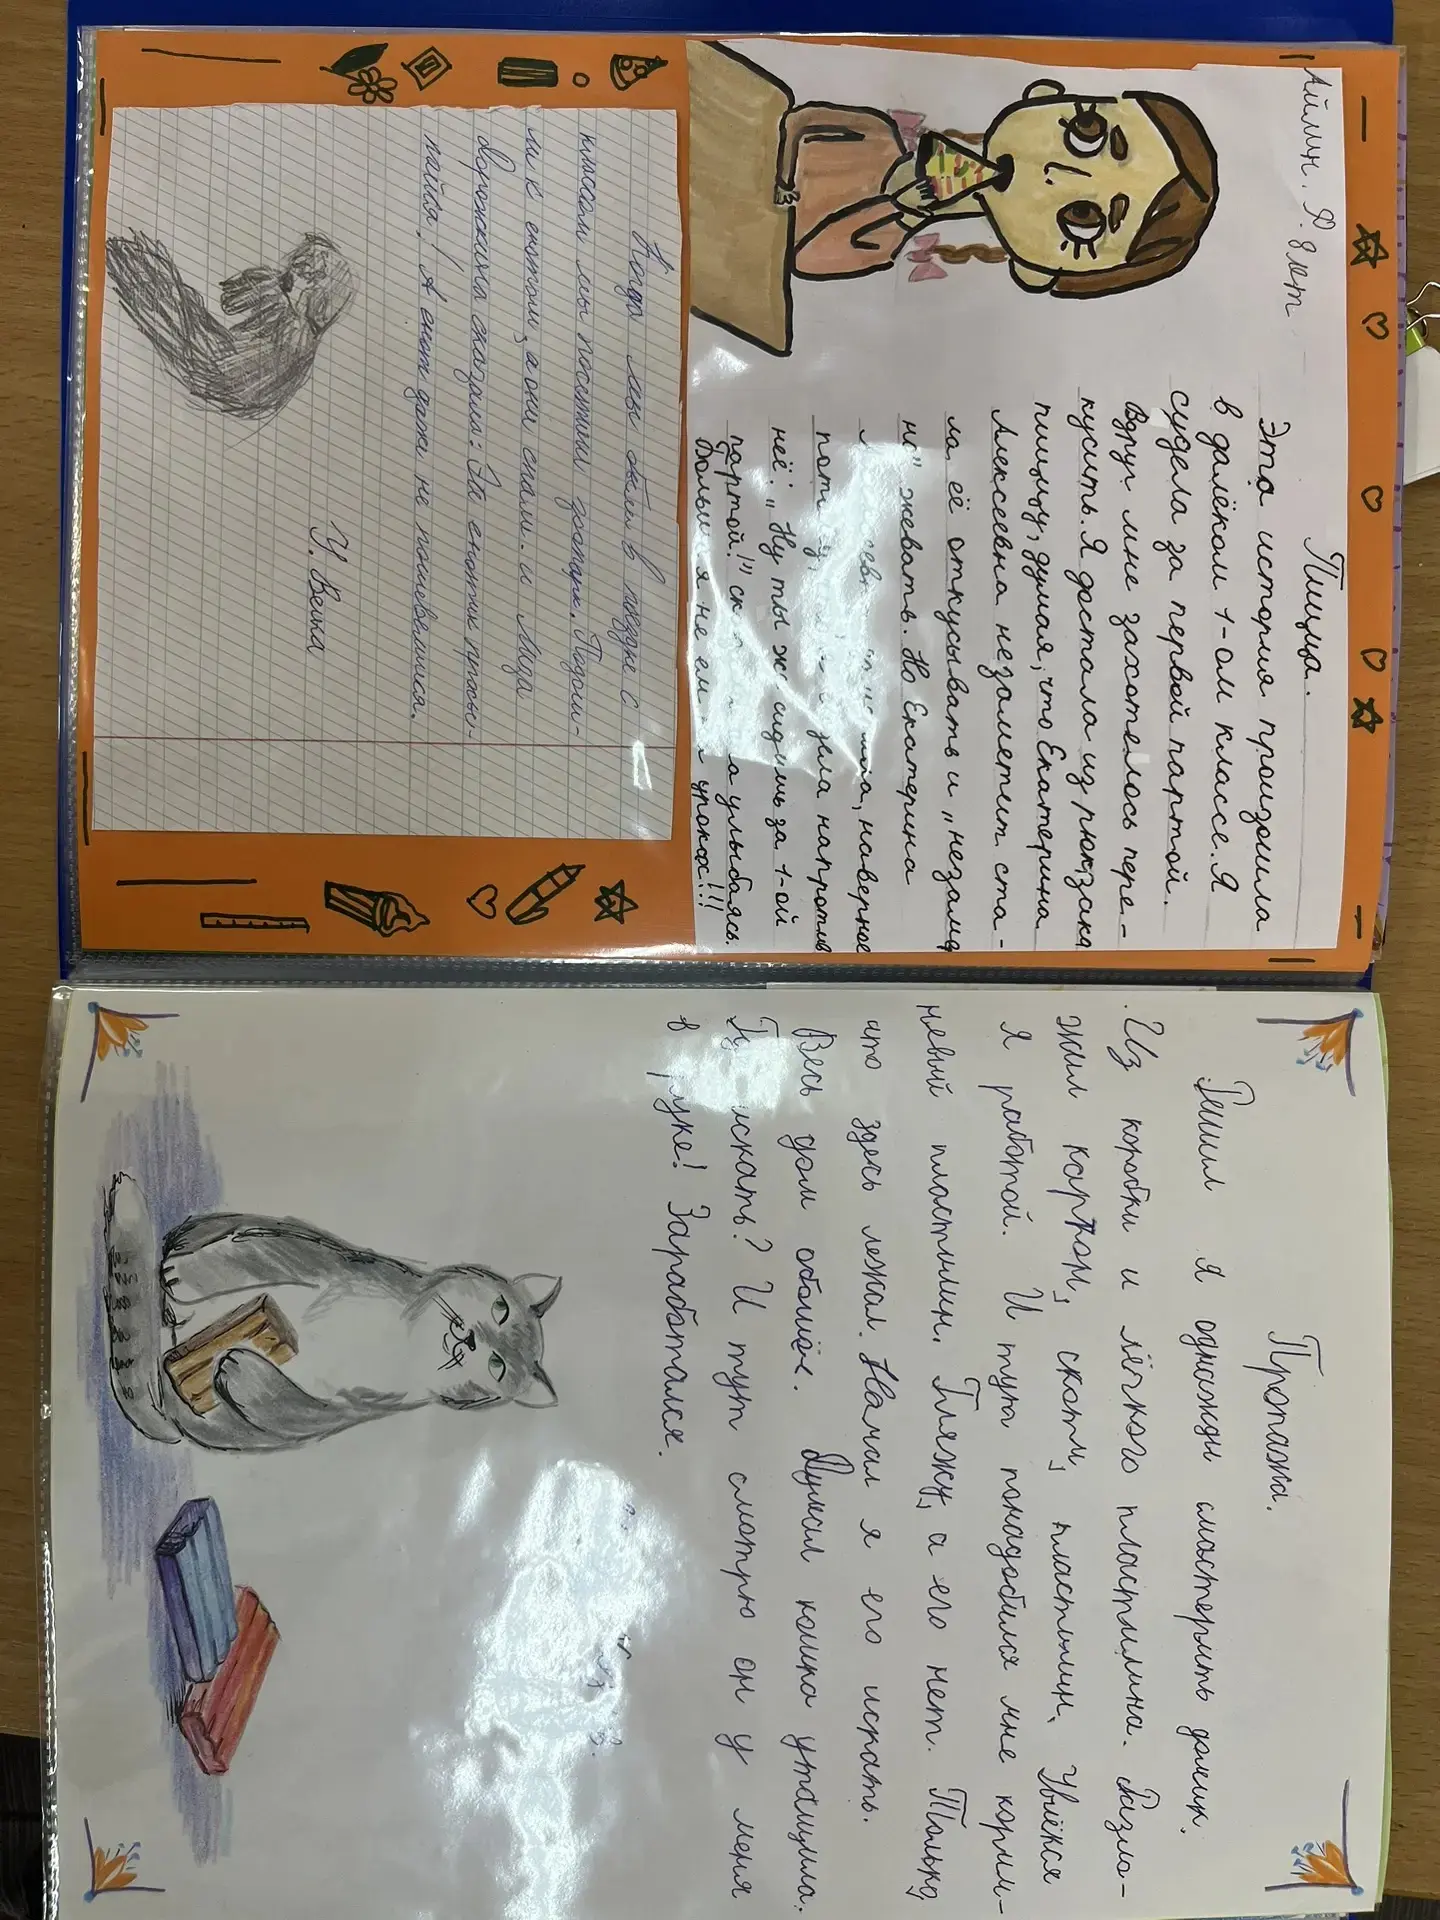 Аймин. Я. 8 лет
Пицца.
Эта история произошла
в далёком 1-ом классе. Я
сидела за первой партой.
Вдруг мне захотелось пере-
кусить. Я достала из рюкзака
пиццу, думая, что Екатерина
Алексеевна не заметит ста-
ла её откусывать и „незаме
но" жевать. Но Екатерина
наверное
напротив
неё. „Ну ты ж сидишь за 1-ой
партой!" улыбаясь.
Больш я не ем уроках!!!
Когда мы были в поезде с
классом мы посетили зоопарк. Подош-
ли к енотам, а они спали. и Лиза
Дорожкина сказала: Эй енотик просы-
пайся! А енот даже не пошевелился.
У. Веина
Пропажа.
Решил я однажды смастерить домик.
Из коробки и лёгкого пластилина. Разло-
жил картон, скотч, пластилин. Увлёкся
я работой. И тут понадобился мне корич-
невый пластилин. Гляжу, а его нет. Только
что здесь лежал. Начал я его искать.
Весь дом обошёл. Думал кошка утащила.
искать? И тут смотрю он у меня
в руке! Заработался.